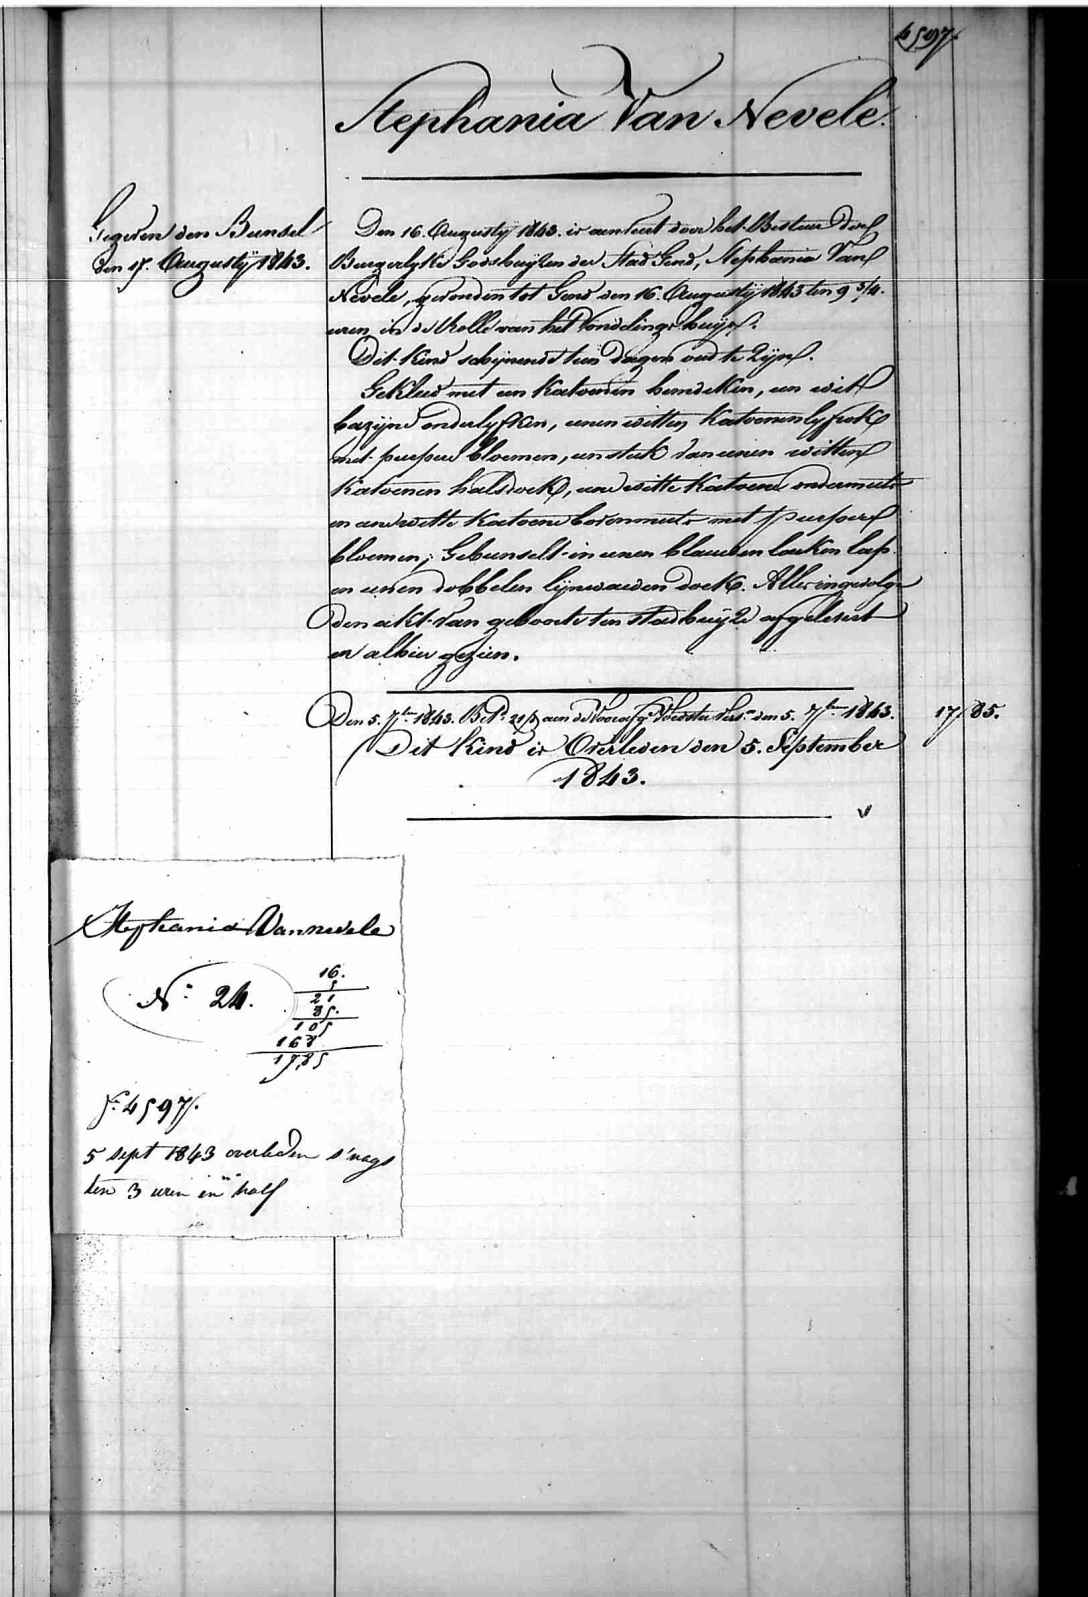 4597.
Stephania Van Nevele.
Gegeven den Bunsel
den 17. Augusty 1843.
Den 16. Augusty 1843. is aenveert door het Bestuer der
Burgerlyke Godshuyzen der Stad Gend, Stephania Van
Nevele, gevonden tot Gend den 16. Augusty 1843 ten 9 3/4.
uren in de Rolle van het Vondelingshuys.
Dit Kind schynende tien dagen oud te Zyn.
Gekleed met een Katoenen hemdeken, een wit
bazyne onderlyfken, eenen witten Katoenen lyfrok
met purpere bloemen, een stuk van eenen witten
Katoenen halsdoek, eene witte Katoene ondermuts
en eene witte Katoene bovenmuts met purpere
bloemen; Gebunselt in eenen blauwen laeken lap
en eenen dobbelen lynwaeden doek. Alles ingevolge
den akt van geboorte ten stadhuyze afgelevert
en alhier gezien.
Den 5. 7bre 1843. Bet. 21 aen de Voedster den 5. 7bre 1843. 17/85.
Dit Kind is Overleden den 5. September
1843.
Stephania Van nevele
N° 24.
16.
5
21
85.
105
168
17,85
f° 4597.
5 sept 1843 overleden s'nags
ten 3 uren in half